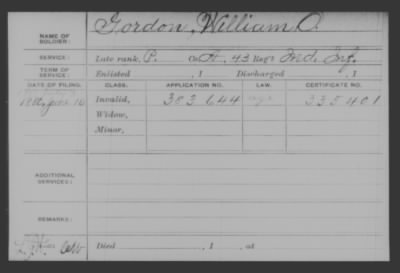 NAME OF SOLDIER: Gordon, William O.
SERVICE: Late rank, P. Co. H. 43 Reg't Ind. Inf.
TERM OF SERVICE: Enlisted , 1 Discharged , 1
DATE OF FILING. CLASS. APPLICATION NO. LAW. CERTIFICATE NO.
1880, June 16 Invalid, 383,644 335401
Widow,
Minor,
ADDITIONAL SERVICES:
REMARKS:
Died , 1 , at